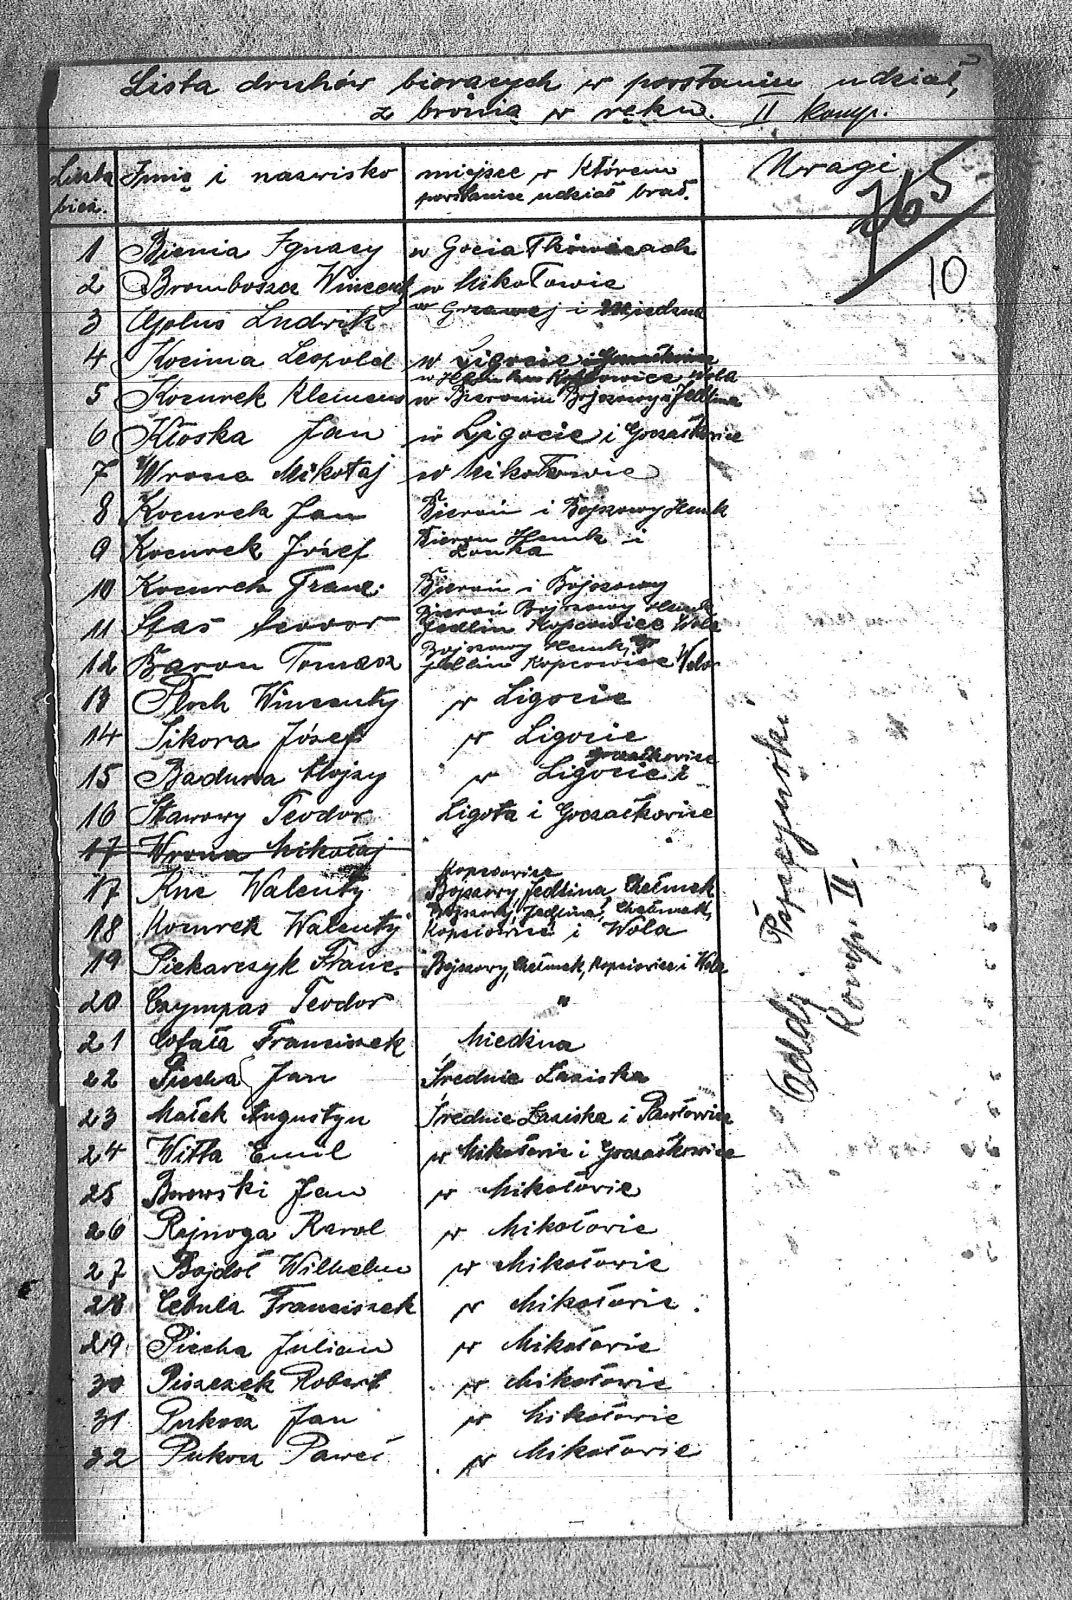 Lista druhów biorących w powstaniu udział,
z bronią w ręku. II komp.
Liczba bież. Imię i nazwisko miejsce w którem powstaniu udział brał. Uwagi
765
10
1 Bienia Ignacy w Goczałkowicach
2 Brombosza Wincenty w Mikołowie
3 Ludwik w Grzawej i Miedzna
4 Kocima Leopold w Ligocie i Goczałkowice
5 Kocurek Klemens w Bieruniu Bojszowy i Jedlina
6 Kłoska Jan w Ligocie i Goczałkowice
7 Wrona Mikołaj w Mikołowie
8 Kocurek Jan Bieruń i Bojszowy Hemk
9 Kocurek Józef Bieruń Hemk i Łonka
10 Kocurek Franc. Bieruń i Bojszowy
11 Staś Bieruń Bojszowy Hemk Jedlin Kopcowice Wola
12 Baron Tomasz Bojszowy Hemk Jedlin Kopcowice Wola
13 Ploch Wincenty w Ligocie
14 Sikora Józef w Ligocie
15 Badura Alojzy w Ligocie i Goczałkowice
16 Stawowy Teodor Ligota i Goczałkowice
17 Wrona Mikołaj
17 Kuc Walenty Bojszowy, Jedlina, Chełmek Kopciowice
18 Kocurek Walenty Bojszowy, Jedlina, Chełmek, Kopciowice i Wola
19 Piekarczyk Franc. Bojszowy, Chełmek, Kopciowice i Wola
20 Czympas Teodor "
21 Cofała Franciszek Miedzna
22 Piecha Jan Średnie Łaziska
23 Małek Augustyn Średnie Łaziska i Pawłowice
24 Witta Emil w Mikołowie i Goczałkowice
25 Borowski Jan w Mikołowie
26 Rojnoga Karol w Mikołowie
27 Bojdoł Wilhelm w Mikołowie
28 Cebula Franciszek w Mikołowie.
29 Piecha Julian w Mikołowie
30 Piszczek Robert w Mikołowie
31 Pukocz Jan w Mikołowie
32 Pukocz Paweł w Mikołowie
Oddz. Pszczyński
Komp. II.